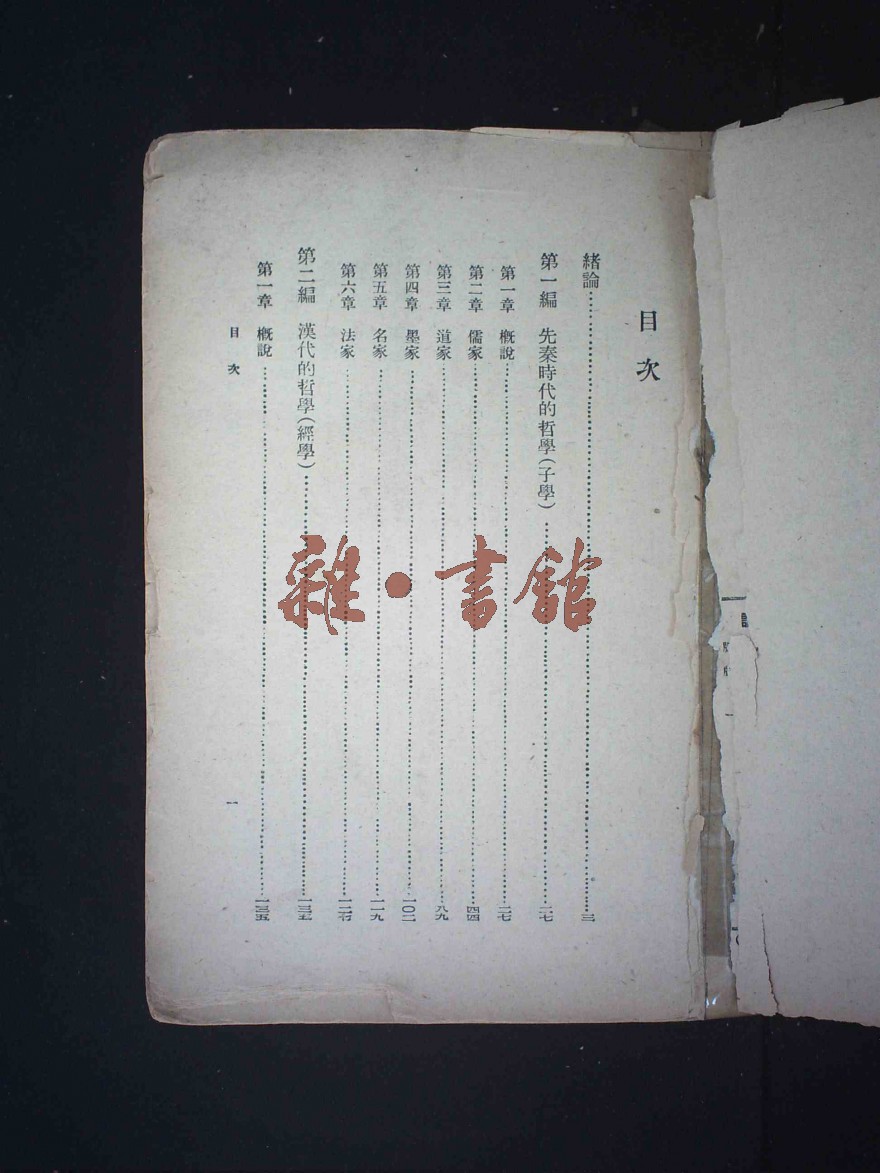 目次
緒論……三
第一編 先秦時代的哲學（子學）……二七
第一章 概說……二七
第二章 儒家……四四
第三章 道家……八九
第四章 墨家……一〇二
第五章 名家……一一九
第六章 法家……
第二編 漢代的哲學（經學）……一三五
第一章 概說……一三五
目次 一
雜•書館